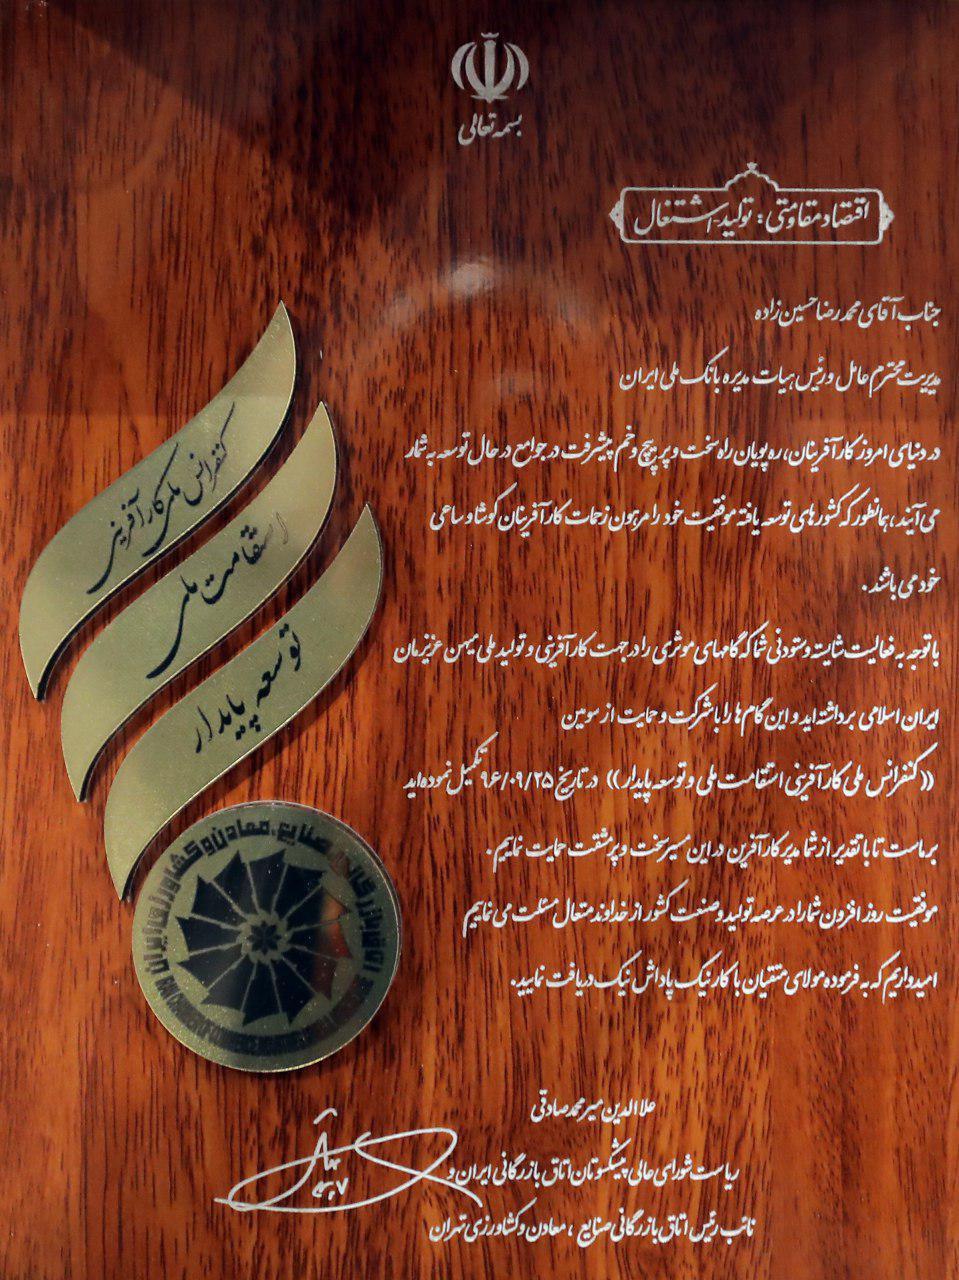 بسمه تعالی
اقتصاد مقاومتی: تولید - اشتغال
جناب آقای محمدرضا حسین زاده
مدیریت محترم عامل و رئیس هیات مدیره بانک ملی ایران
در دنیای امروز کارآفرینان، ره پویان راه سخت و پر پیچ و خم پیشرفت در جوامع در حال توسعه به شمار
می آیند، همانطور که کشورهای توسعه یافته موفقیت خود را مرهون زحمات کارآفرینان کوشا و ساعی
خود می باشند.
با توجه به فعالیت شایسته و ستودنی شما که گامهای موثری را در جهت کارآفرینی و تولید ملی میهن عزیزمان
ایران اسلامی برداشته اید و این گام ها را با شرکت و حمایت از سومین
((کنفرانس ملی کارآفرینی استقامت ملی و توسعه پایدار)) در تاریخ ۹۶/۰۹/۲۵ تکمیل نموده اید
برماست تا با تقدیر از شما مدیر کارآفرین در این مسیر سخت و پر مشقت حمایت نماییم.
موفقیت روز افزون شما را در عرصه تولید و صنعت کشور از خداوند متعال مسئلت می نماییم
امیدواریم که به فرموده مولای متقیان با کار نیک پاداش نیک دریافت نمایید.
کنفرانس ملی کارآفرینی
استقامت ملی
توسعه پایدار
اتاق بازرگانی، صنایع، معادن و کشاورزی ایران
علاالدین میرمحمد صادقی
ریاست شورای عالی پیشکسوتان اتاق بازرگانی ایران و
نائب رئیس اتاق بازرگانی صنایع، معادن و کشاورزی تهران